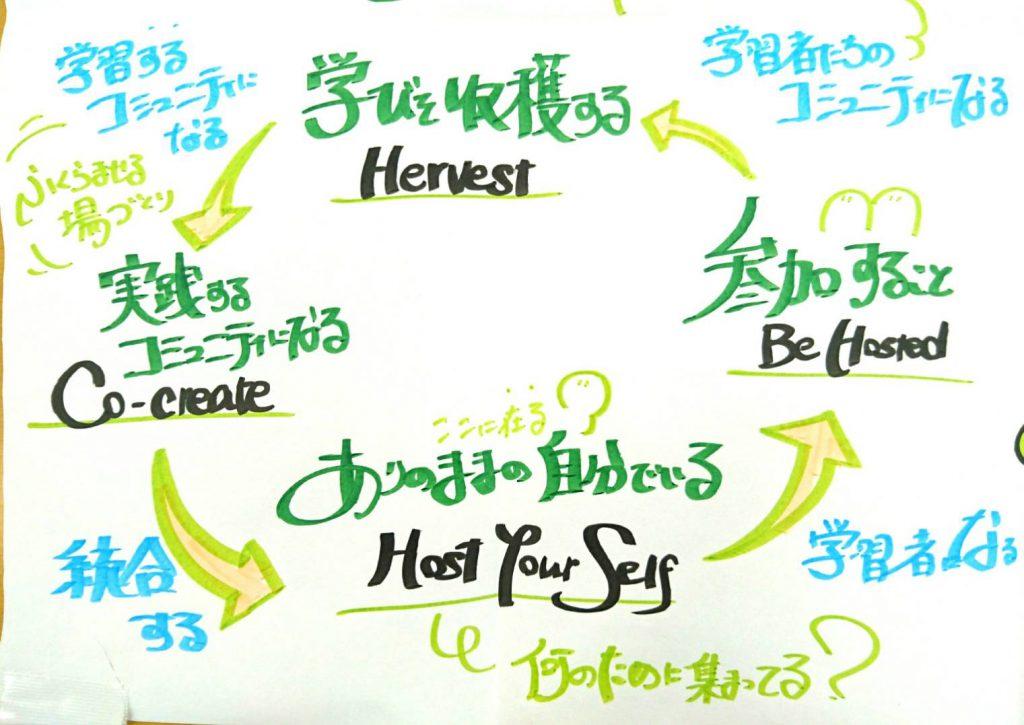 学習する
コミュニティに
なる
学びを収穫する
Hervest
学習者たちの
コミュニティになる
ふくらませる
場づくり
実践する
コミュニティになる
Co-create
参加すること
Be Hosted
ここに在る
ありのままの自分でいる
Host Your Self
統合
する
学習者なる
何のために集まってる?